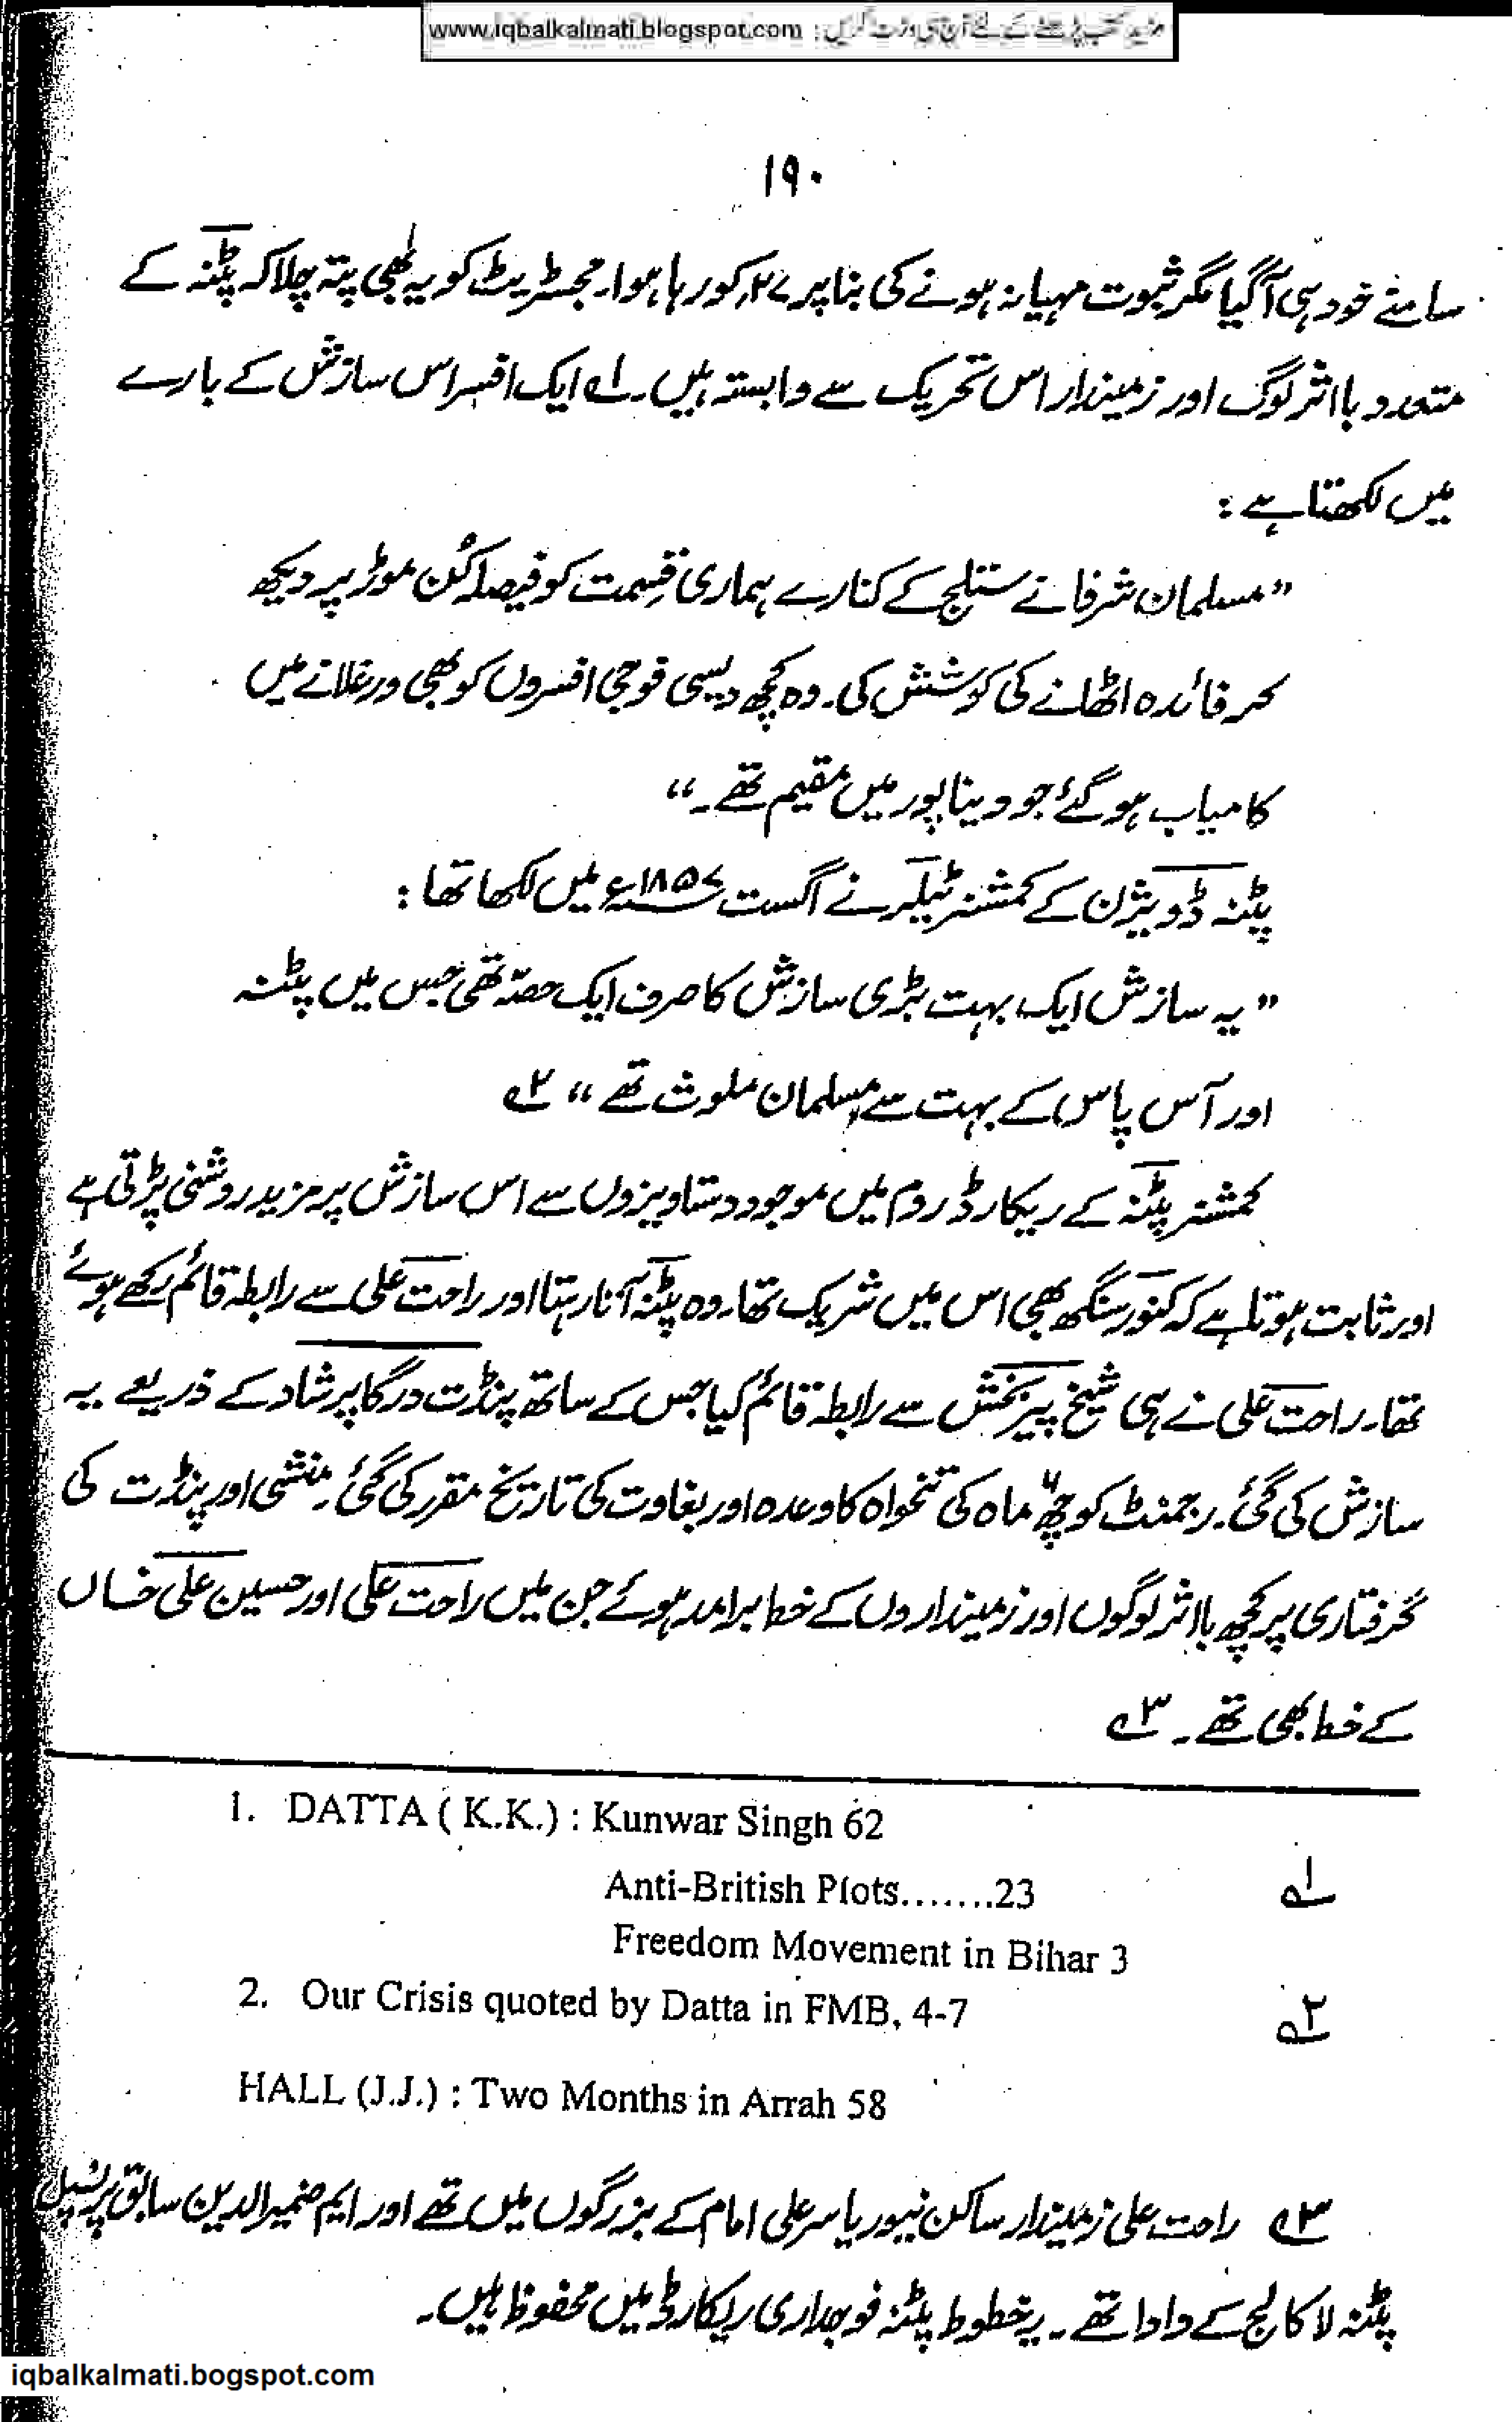 مزید کتب پڑھنے کے لئے آج ہی وزٹ کریں : www.iqbalkalmati.blogspot.com
۱۹۰
سامنے خود ہی آگیا مگر ثبوت مہیا نہ ہونے کی بنا پر ۲۷ کو رہا ہوا۔ مجسٹریٹ کو یہ بھی پتہ چلا کہ پٹنہ کے
متعدد با اثر لوگ اور زمیندار اس تحریک سے وابستہ ہیں۔ ۱ ایک افسر اس سازش کے بارے
میں لکھتا ہے :
”مسلمان شرفا نے ستلج کے کنارے ہماری قِسمت کو فیصلہ کُن موڑ پر دیکھ
کر فائدہ اٹھانے کی کوشش کی۔ وہ کچھ دیسی فوجی افسروں کو بھی ورغلانے میں
کامیاب ہو گئے جو دینا پور میں مقیم تھے۔“
پٹنہ ڈویژن کے کمشنر ٹیلر نے اگست ۱۸۵۷ء میں لکھا تھا :
”یہ سازش ایک بہت بڑی سازش کا صرف ایک حصّہ تھی جس میں پٹنہ
اور آس پاس کے بہت سے مسلمان ملوث تھے“ ۲
کمشنر پٹنہ کے ریکارڈ روم میں موجود دستاویزوں سے اس سازش پر مزید روشنی پڑتی ہے
اور ثابت ہوتا ہے کہ کنور سنگھ بھی اس میں شریک تھا۔ وہ پٹنہ آتا رہتا اور راحت علی سے رابطہ قائم رکھے ہوئے
تھا۔ راحت علی نے ہی شیخ پیر بخش سے رابطہ قائم کیا جس کے ساتھ پنڈت درگا پرشاد کے ذریعے یہ
سازش کی گئی۔ رجمنٹ کو چھ ماہ کی تنخواہ کا وعدہ اور بغاوت کی تاریخ مقرر کی گئی۔ منشی اور پنڈت کی
گرفتاری پر کچھ با اثر لوگوں اور زمینداروں کے خط برامد ہوئے جن میں راحت علی اور حسین علی خاں
کے خط بھی تھے۔ ۳
1. DATTA ( K.K.) : Kunwar Singh 62
Anti-British Plots.......23 ۱
Freedom Movement in Bihar 3
2. Our Crisis quoted by Datta in FMB, 4-7 ۲
HALL (J.J.) : Two Months in Arrah 58
۳ راحت علی زمیندار ساکن نیوریا سر علی امام کے بزرگوں میں تھے اور ایم ضمیر الدین سابق پرنسپل
پٹنہ لا کالج کے دادا تھے۔ یہ خطوط پٹنہ فوجداری ریکارڈ میں محفوظ ہیں۔
iqbalkalmati.bogspot.com